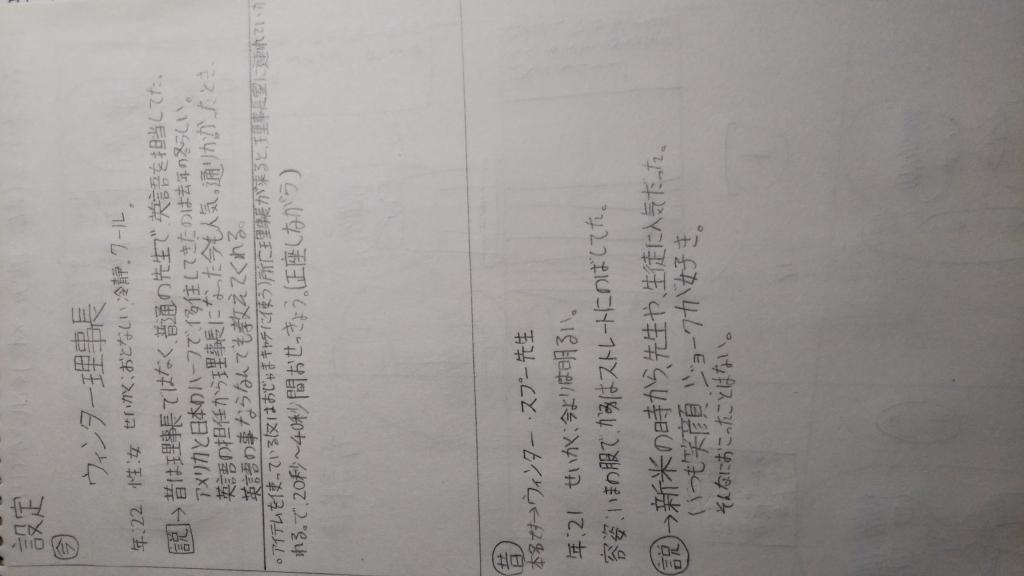 設定
今
ウィンター理事長
年:22 性:女 せいかく:おとなしい、冷静。クール。
説→昔は理事長ではなく、普通の先生で、英語を担当してた。
アメリカと日本のハーフで、移住してきたのは去年の冬らしい。
英語の担任から理事長になった今も人気。通りかかったとき、
英語の事ならなんでも教えてくれる。
。アイテムを使っている又はおじゃまキャラに使う所に理事長が来ると、理事長室に連れていか
れる。で、20秒〜40秒間おせっきょう。(正座しながら)
昔
本名→ウィンター・スプー先生
年:21 せいかく、今よりは明るい。
容姿、いまの服で、かみはストレートにのばしてた。
説→新米の時から、先生や、生徒に人気だった。
いつも笑顔 ジョークが好き。
そんなにおこったことはない。